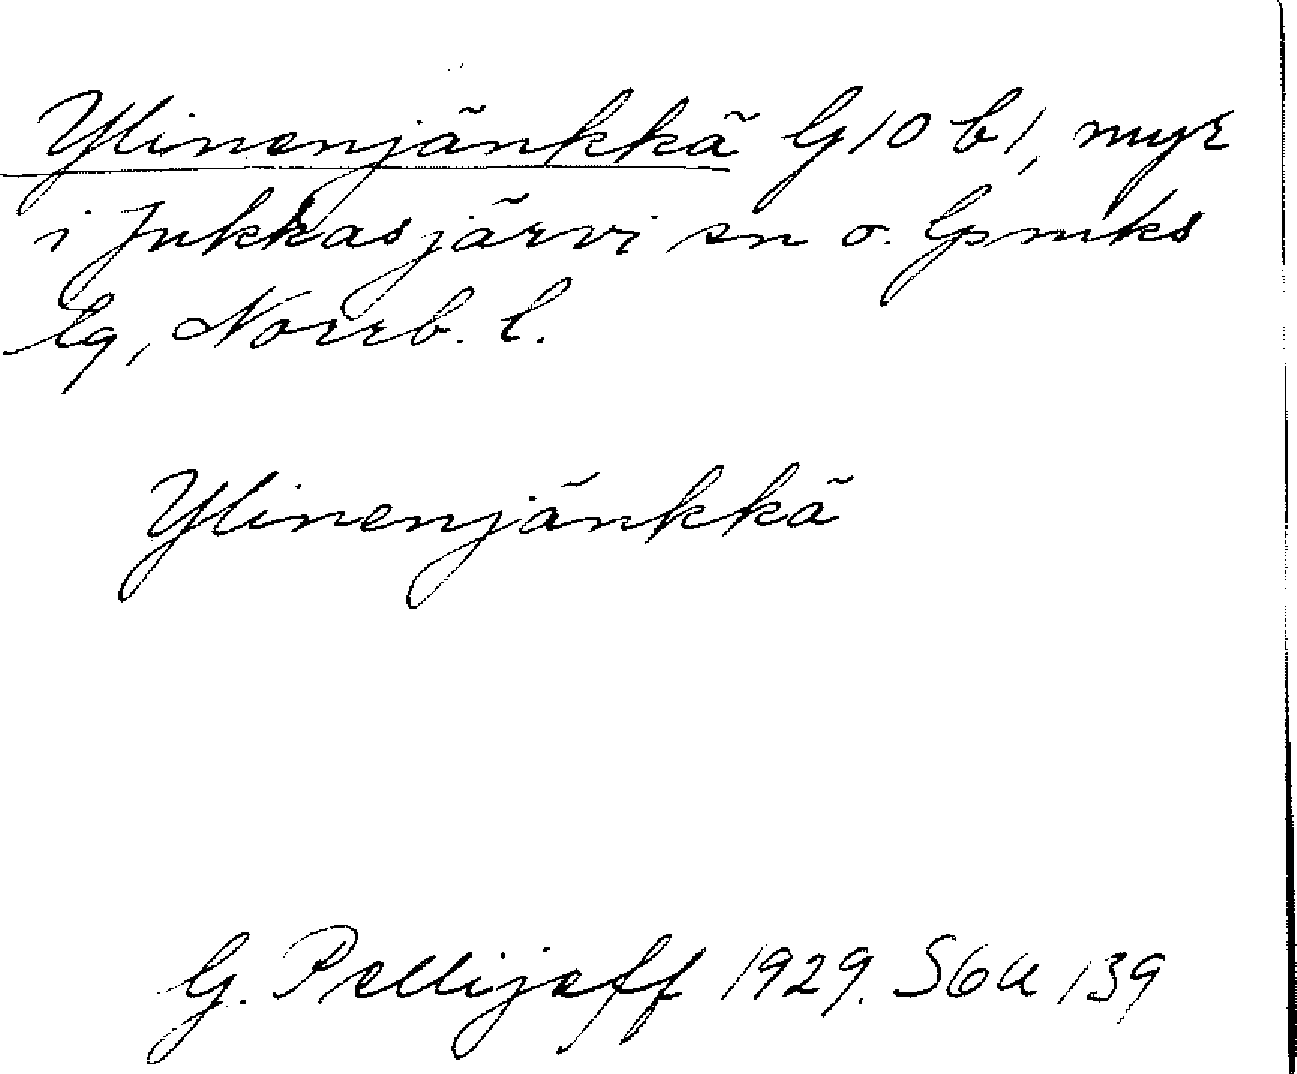 Ylinenjänkkä G 10 b 1, myr
i Jukkasjärvi sn o. lpmks
lg, Norrb. l.
Ylinenjänkkä
G. Pellijeff 1929. S6u 139